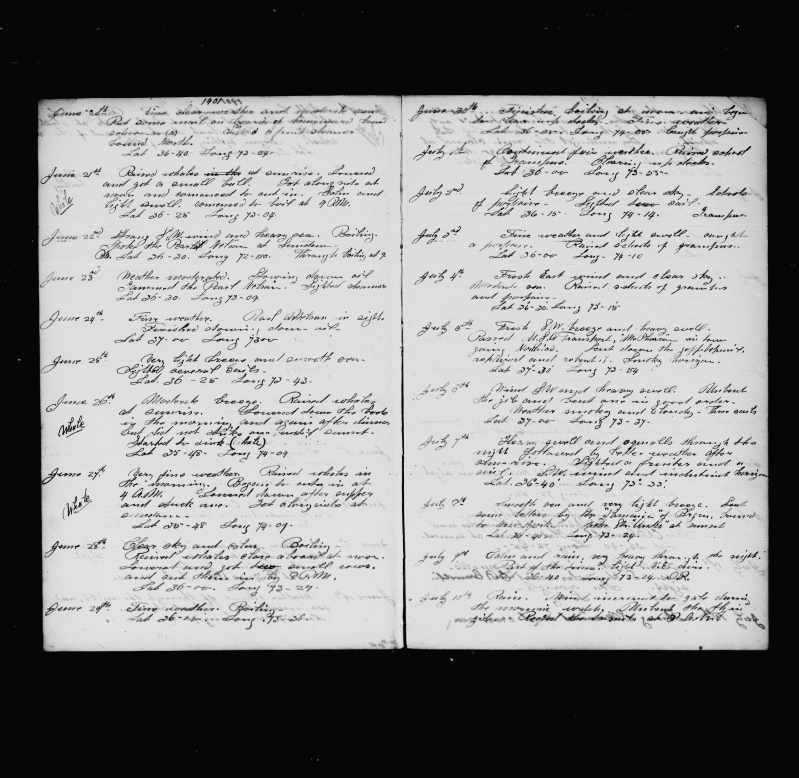 1901
June 20th Fine clear weather and moderate
Put some
bound North.
Lat 36-40 Long 73-04
June 21st Raised whales at sunrise. Lowered
and got a small bull. Got along side at
noon and commenced to cut in. Calm and
light swell. commenced to boil at 9 P.M.
Whale
Lat 36-28 Long 73-04.
June 22nd Strong S.W. wind and heavy sea. Boiling.
Spoke the Pearl Nelson at
Lat. 36-30. Long 72-50. Through boiling at 9.
June 23rd Weather moderated. Stowing down oil
Gammed the Pearl Nelson. Sighted steamer
Lat 36-30. Long 73-09.
June 24th Fine weather. Pearl Nelson in sight
Finished stowing down oil
Lat 37-00 Long 7300
June 25th Very light breeze and smooth sea
Sighted several sails.
Lat. 36-25 Long 73-43.
June 26th Moderate breeze. Raised whales
at sunrise. Lowered down the boats
in the morning and again after dinner
but did not strike one until sunset.
Whale
Started to sink (
Lat 35-48. Long 74-09
June 27th Very fine weather. Raised whales in
the morning. Began to cut in at
4 A.M. Lowered down after supper
and struck one. Got along side at
Whale
Lat 35-48 Long 74-09.
June 28th Clear sky and calm. Boiling
Raised whales close aboard at noon.
Lowered and got two small cows.
and cut them in by 8 P.M.
Lat 36-00. Long 73-29
June 29th Fine weather. Boiling.
Lat 36- Long 73-36
June 30th Finished boiling at noon and began
to clear up decks. Fine weather
Lat 36-05. Long 74-05 caught porpoise
July 1st Continued fair weather. Raised school
of Grampuses. Clearing up decks.
Lat 36-00 Long 73-55
July 2nd Light breeze and clear sky. Schools
of porpoise. Sighted sail.
Lat 36-15. Long 74-14. Grampus.
July 3rd Fine weather and light swell. caught
a porpoise. Raised schools of grampus.
Lat 36-00 Long 74-10
July 4th Fresh East wind and clear sky.
Moderate sea. Raised schools of grampus
and porpoise.
Lat 36-30. Long 73-18
July 5th Fresh S.W. breeze and heavy swell.
Passed U.S.A. Transport, McPherson in tow
going Northward. Sent down the
repaired and rebent it. Smoky horizon.
Lat 37-30 Long 73-54
July 6th Wind S.W. and heavy swell. Unbent
the jib and bent one in good order.
Weather smoky and cloudy. Three sails
Lat. 37-00 Long 73-37.
July 7th Heavy swell and squalls through the
night followed by better weather after
sun-rise. Sighted a freighter and a
S.W. wind and indistinct horizon
Lat. 36-40 Long 73-33.
July 8th Smooth sea and very light breeze. Sent
some letters by the "Jamaica" of Bergen, bound
to New York. Spoke the at sunset
Lat 36-40. Long 73-24.
July 9th Calm and rain, very heavy through the night.
Part of the time light N.E. airs.
36-40 Long 73-24 D.R.
July 10th Rain. Wind increased to gale during
the morning watch. Unbent the
jib.